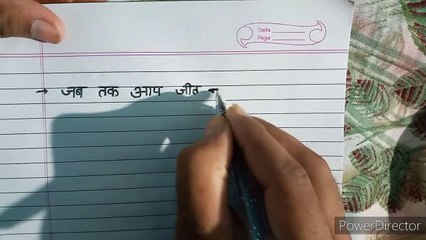 Date
Page
→ जब तक आप जीत
PowerDirector